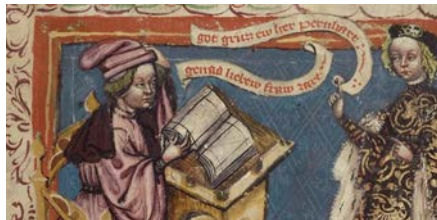 got gruz ew her pernhart
genad liebew fraw